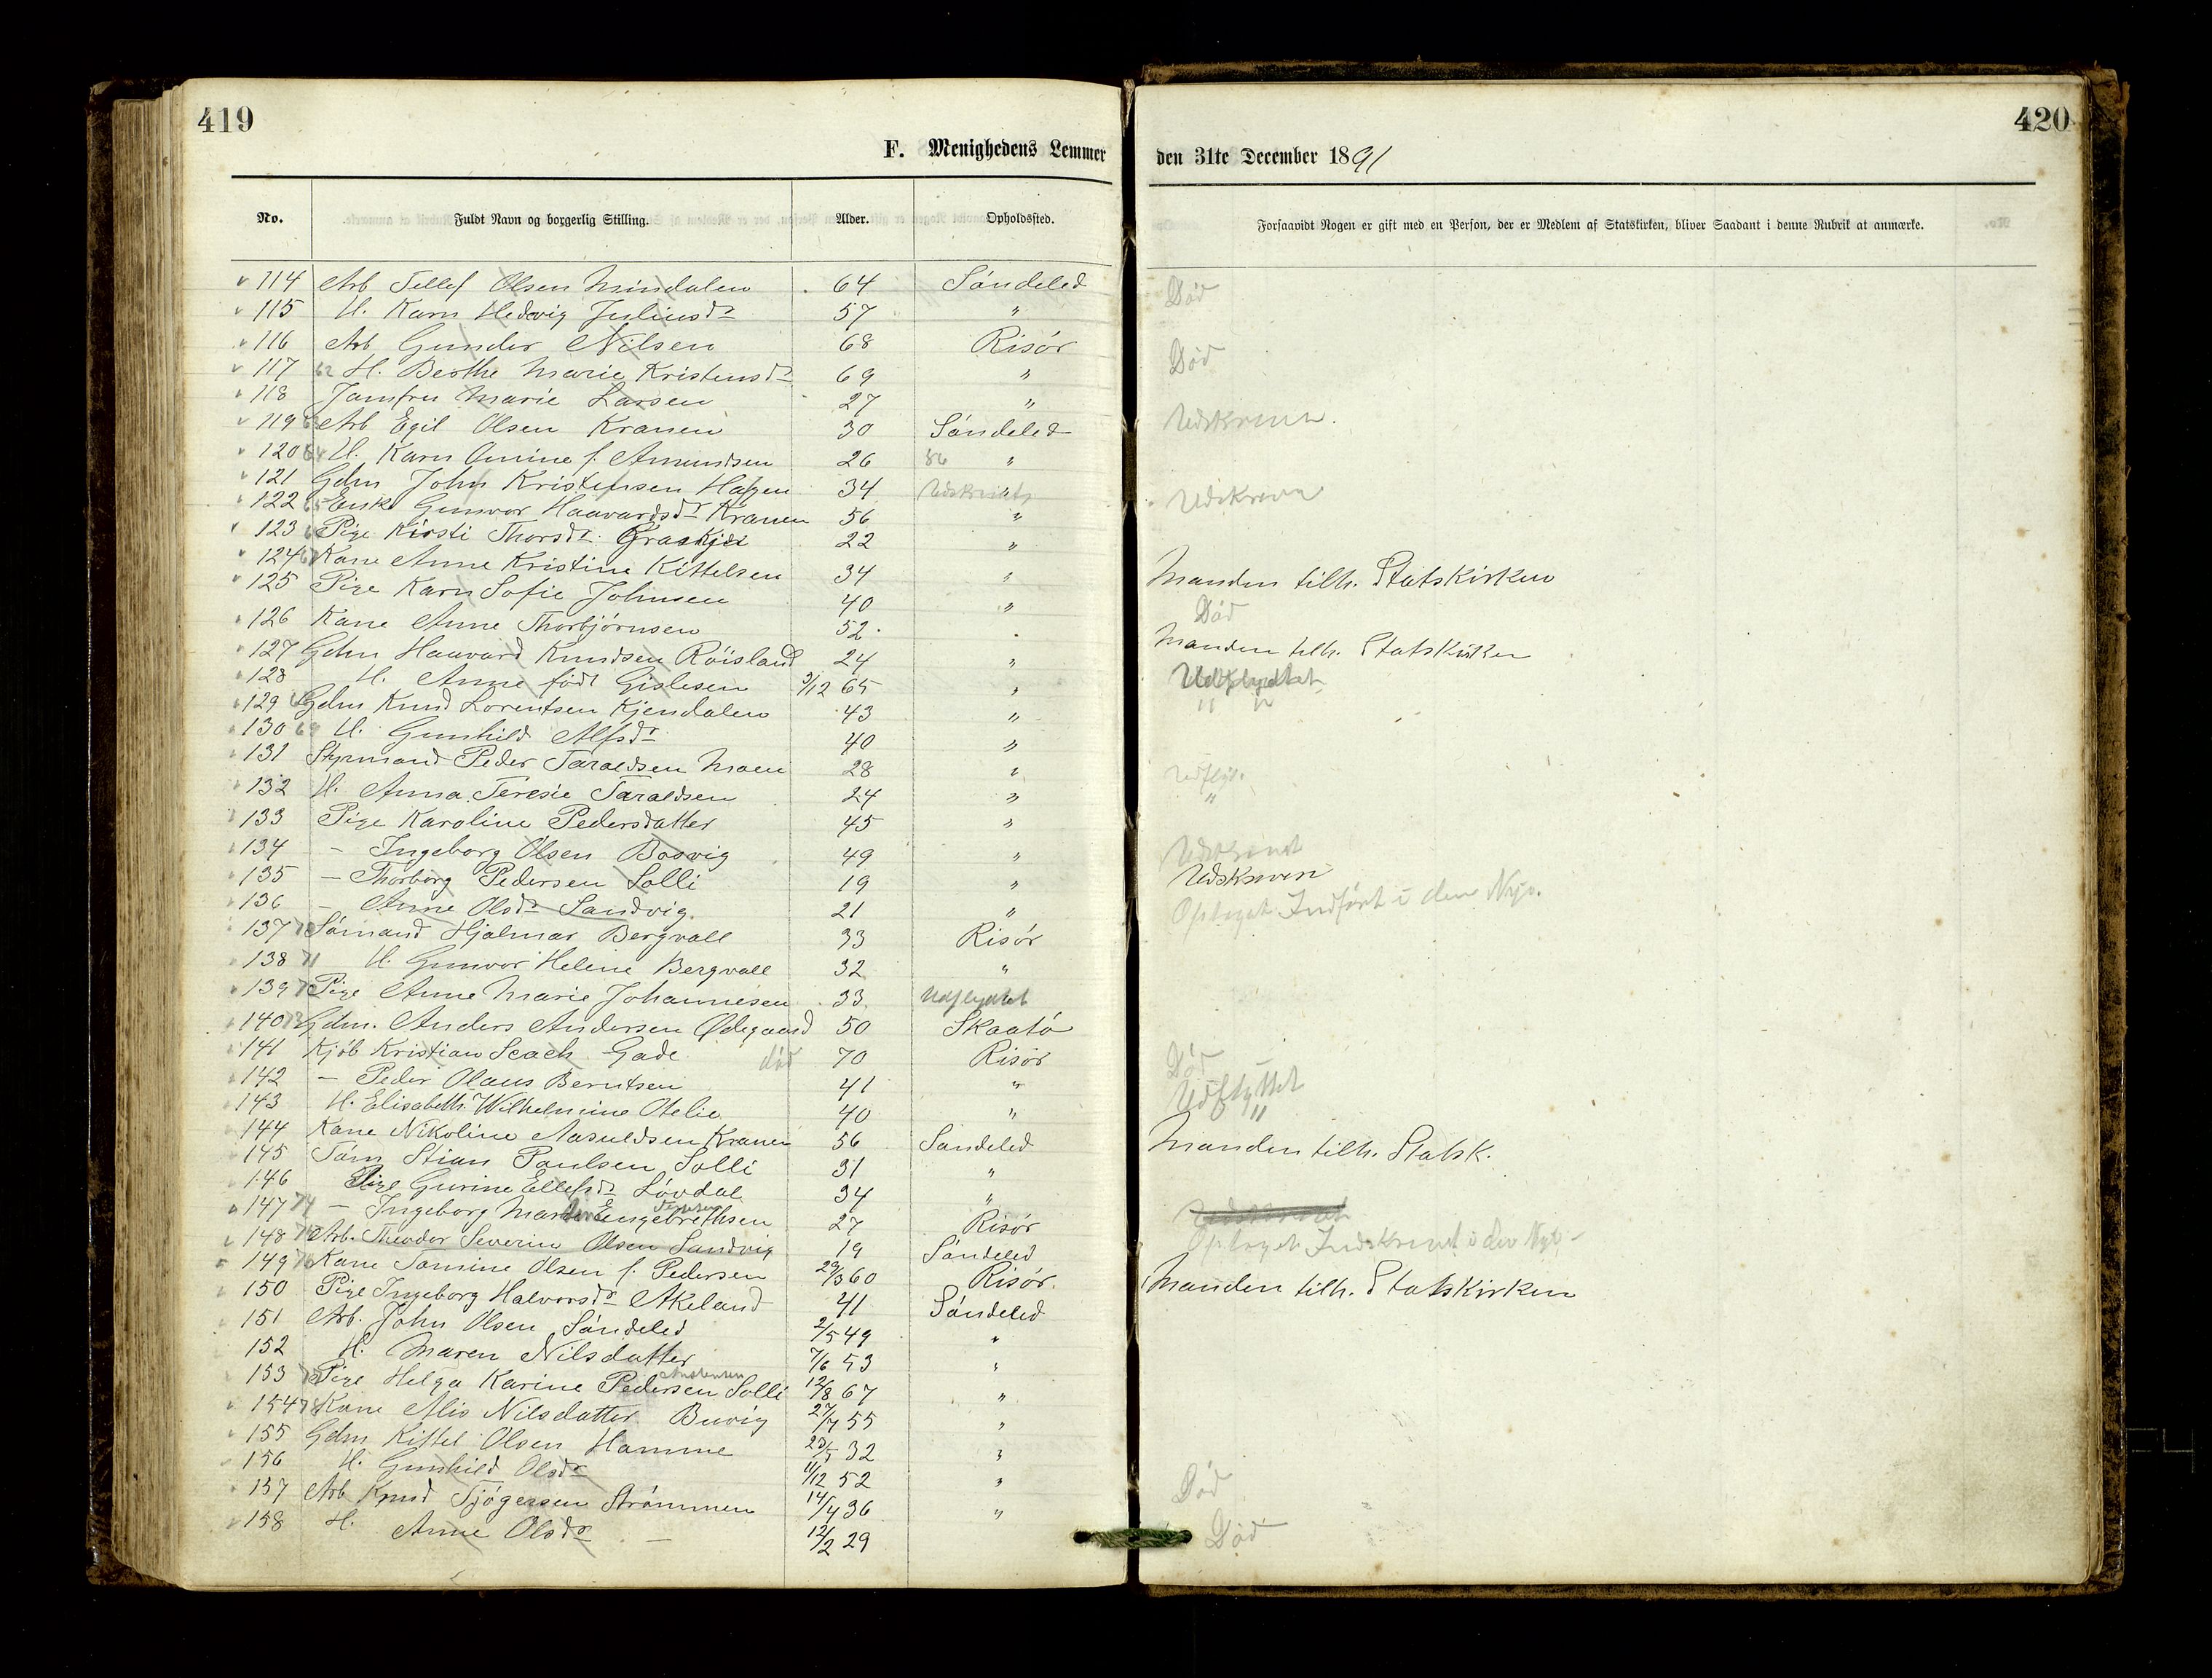 419
420
F. Menighedens Lemmer den 31te December 1891
No. Fuldt Navn og borgerlig Stilling. Alder. Opholdssted. Forsaavidt Nogen er gift med en Person, der er Medlem af Statskirken, bliver Saadant i denne Rubrik at anmærke.
114 Arb Tellef Olsen Mindalen 64 Söndeled Död
115 H. Karn Hedvig Juliusdr 57 "
116 Arb Gunder Nilsen 68 Risör Död
117 62 H. Berthe Marie Kristensdr 69 "
118 Jomfru Marie Larsen 27 " Udskreven.
119 Arb Egil Olsen Kranen 30 Söndeled
120 64 H. Karn Omine f. Amundsen 26 86 "
121 Gdm John Kristensen Hafzen 34 " Udskreven
122 65 Enke Gunvor Haavardsdr Kranen 56 "
123 Pige Kirsti Thorsdr 22 "
124 67 Kone Anne Kristine Kittelsen 34 " Manden tilh. Statskirken
125 Pige Karn Sofie Johnsen 40 " Död
126 Kone Anne Thorbjörnsen 52 Manden tilh. Statskirken
127 Gdm Haavard Knudsen Röisland 24 " Udflyttet
128 H. Anne födt Gislesen 3/12 65 " " "
129 Gdm Knud Lorentsen Kjendalen 43 "
130 69 H. Gunhild Alfsdr 40 "
131 Styrmand Peder Taraldsen Moen 28 " Udflyt.
132 H. Anna Teresie Taraldsen 24 " "
133 Pige Karoline Pedersdatter 45 "
134 - Ingeborg Olsen Bosvig 49 " Udskrevet
135 - Thorborg Pedersen Solli 19 " Udskreven
136 - Anne Olsdr Sandvig. 21 " Optaget Indfört i den Nye.
137 70 Sömand Hjalmar Bergvall 33 Risör
138 71 H. Gunvor Heline Bergvall 32 "
139 72 Pige Anne Marie Johannesen 33 Udflyttet
140 73 Gdm. Anders Andersen Ödegaard 50 Skaatö
141 Kjöb Kristian Scach Gade död 70 Risör Död
142 - Peder Olaus Berntsen 41 " Udflyttet
143 H. Elisabeth Wilhelmine Otelie 40 " "
144 Kone Nikoline Aasuldsen Kranen 56 Söndeled Manden tilh. Statsk.
145 Töm Stian Paulsen Solli 31 "
146 Pige Gurine Ellefsdr Lövdal 34 "
147 74 - Ingeborg Engebrethsen 27 Risör
148 Arb. Theodor Severin Olsen Sandvig 19 Söndeled Optaget Indskrevet i den Nye -
149 76 Kone Tomine Olsen f. Pedersen 29/3 60 Risör. Manden tilh. Statskirken
150 Pige Ingeborg Halvorsdr Akeland 41 Söndeled
151 Arb. John Olsen Söndeled 2/5 49 "
152 H. Maren Nilsdatter 7/6 53 "
153 Pige Helga Karine Pedersen Solli 12/8 67 "
154 78 Kone Alis Nilsdatter Buvig 27/7 55 "
155 Gdm Kittel Olsen Hamme 23/5 32 "
156 H. Gunhild Olsdr 11/12 52 " Död
157 Arb Knud Tjögersen Strömmen 14/4 36 "
158 H. Anne Olsdr - 12/2 29 Död